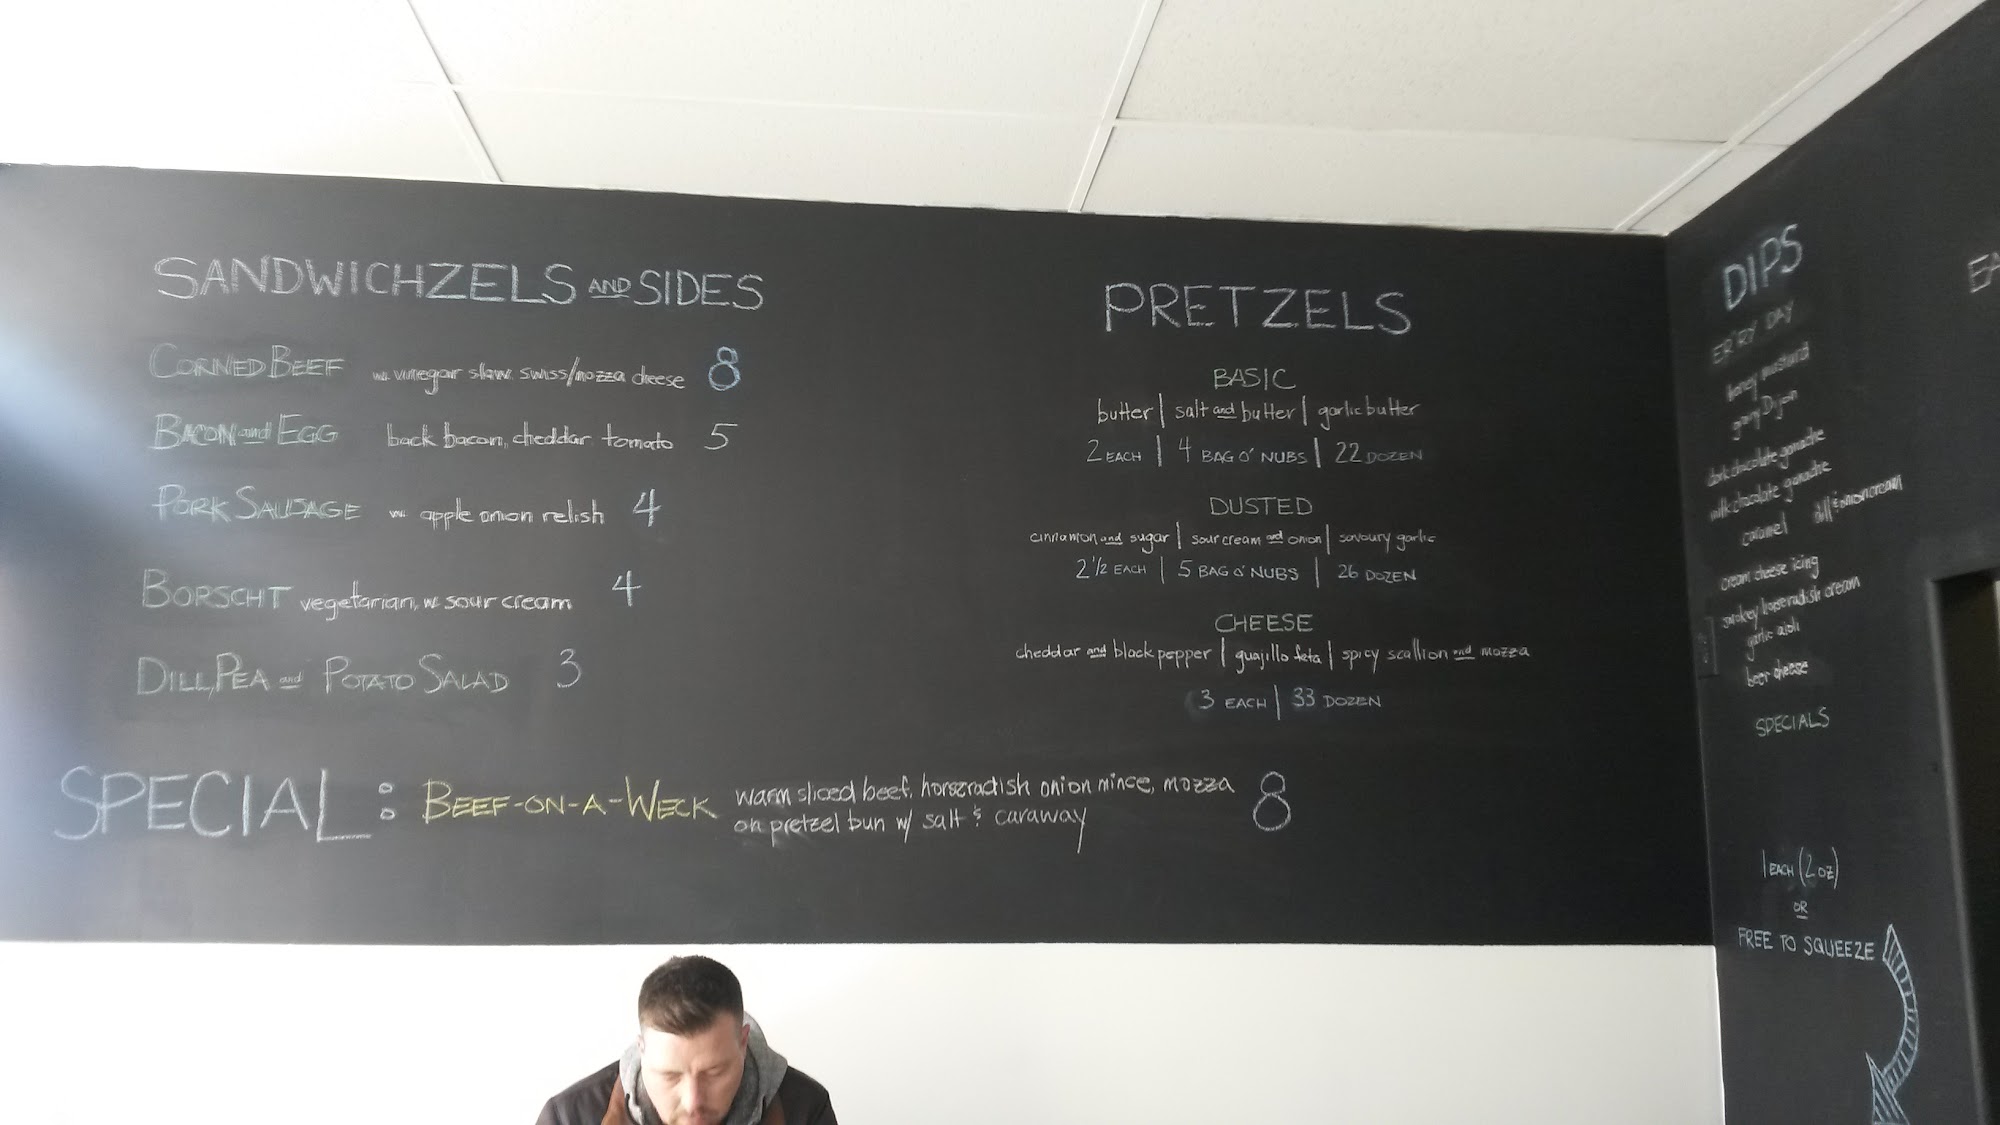 SANDWICHZELS AND SIDES
CORNED BEEF w. vinegar slaw. swiss/mozza cheese 8
BACON and EGG back bacon, cheddar tomato 5
PORK SAUSAGE w. apple onion relish 4
BORSCHT vegetarian, w. sour cream 4
DILL, PEA and POTATO SALAD 3
SPECIAL: BEEF-ON-A-WECK warm sliced beef, horseradish onion mince, mozza
on pretzel bun w/ salt & caraway 8
PRETZELS
BASIC
butter | salt and butter | garlic butter
2 EACH | 4 BAG O' NUBS | 22 DOZEN
DUSTED
cinnamon and sugar | sour cream and onion | savoury garlic
2 1/2 EACH | 5 BAG O' NUBS | 26 DOZEN
CHEESE
cheddar and black pepper | guajillo feta | spicy scallion and mozza
3 EACH | 33 DOZEN
DIPS
ER'RY DAY
honey mustard
grainy Dijon
dark chocolate ganache
milk chocolate ganache
caramel dill & onion cream
cream cheese icing
smokey horseradish cream
garlic aioli
beer cheese
SPECIALS
1 EACH (2 OZ)
OR
FREE TO SQUEEZE